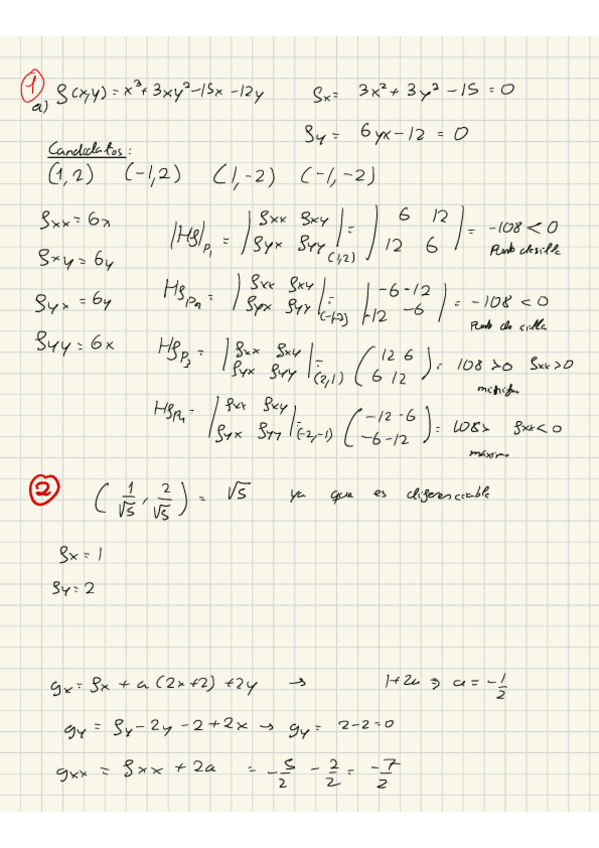 1
a) f(x,y) = x³ + 3xy² - 15x - 12y fx = 3x² + 3y² - 15 = 0
fy = 6yx - 12 = 0
Candidatos:
(1,2) (-1,2) (1,-2) (-1,-2)
fxx = 6x
fxy = 6y
fyx = 6y
fyy = 6x
|Hf|P₁ = |fxx fxy fyx fyy|(1,2) = |6 12 12 6| = -108 < 0
Punto de silla
HfP₂ = |fxx fxy fyx fyy| = |-6 -12 -12 -6| = -108 < 0
Punto de silla
HfP₃ = |fxx fxy fyx fyy|(2,1) = (12 6 6 12) = 108 > 0 fxx > 0
HfP₄ = |fxx fxy fyx fyy|(-2,-1) = (-12 -6 -6 -12) = 108 > fxx < 0
máximo
2
(1/√5, 2/√5) = √5 ya que es diferenciable
fx = 1
fy = 2
gx = fx + a(2x+2) + 2y → 1+2a ⇒ a = -1/2
gy = fy - 2y - 2 + 2x → gy = 2-2=0
gxx = fxx + 2a = -5/2 - 2/2 = -7/2